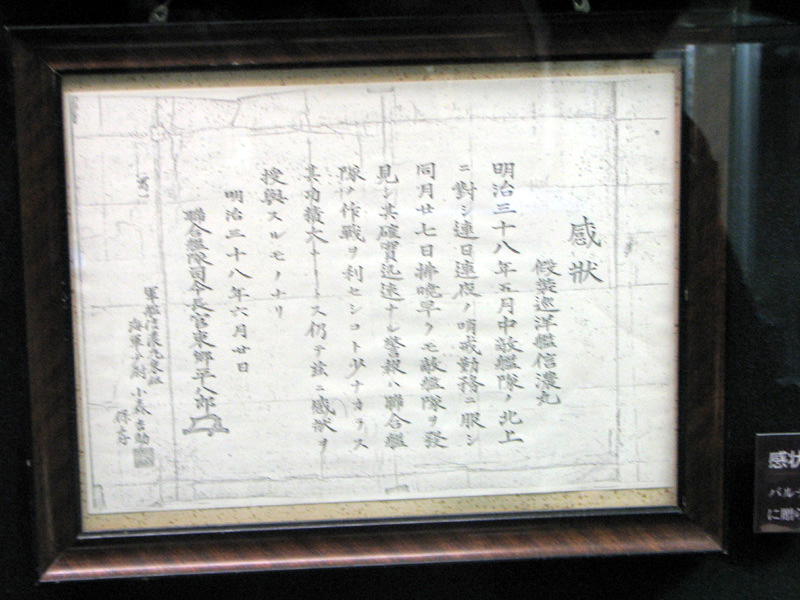 感狀
假裝巡洋艦信濃丸
明治三十八年五月中敵艦隊ノ北上
ニ對シ連日連夜ノ哨戒勤務ニ服シ
同月廿七日拂曉早クモ敵艦隊ヲ發
見シ其確實迅速ナル警報ハ聯合艦
隊ノ作戰ヲ利セシコト少ナカラス
其功績大ナリトス仍テ玆ニ感狀ヲ
授與スルモノナリ
明治三十八年六月廿日
聯合艦隊司令長官東鄉平八郎
(寫)
軍艦信濃丸乘組
海軍少尉 小森吉助
保存
感状
バル
に贈